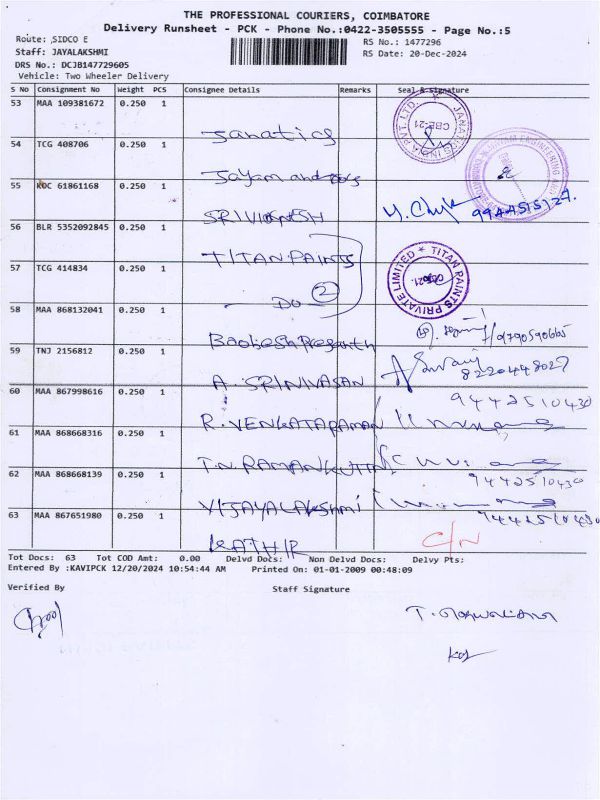 THE PROFESSIONAL COURIERS, COIMBATORE
Delivery Runsheet - PCK - Phone No.:0422-3505555 - Page No.:5
Route: SIDCO E
RS No.: 1477296
Staff: JAYALAKSHMI
RS Date: 20-Dec-2024
DRS No.: DCJB147729605
Vehicle: Two Wheeler Delivery
S No Consignment No Weight PCS Consignee Details Remarks Seal & Signature
53 MAA 109381672 0.250 1 Janatics
54 TCG 408706 0.250 1 Jayam and
55 KOC 61861168 0.250 1 SRIVIGNESH 9944515127.
56 BLR 5352092845 0.250 1 TITAN PAINTS
57 TCG 414834 0.250 1 DO 2
TITAN PAINTS PRIVATE LIMITED
58 MAA 868132041 0.250 1
59 TNJ 2156812 0.250 1 A. SRINIVASAN 8220448027
60 MAA 867998616 0.250 1 R. VENKATARAMAN 9442510430
61 MAA 868668316 0.250 1 T.N. RAMANKUTTIN
62 MAA 868668139 0.250 1 VIJAYALAKSHMI 9442510430
63 MAA 867651980 0.250 1 KATHIR C/N 9442510430
Tot Docs: 63 Tot COD Amt: 0.00 Delvd Docs: Non Delvd Docs: Delvy Pts:
Entered By :KAVIPCK 12/20/2024 10:54:44 AM Printed On: 01-01-2009 00:48:09
Verified By Staff Signature